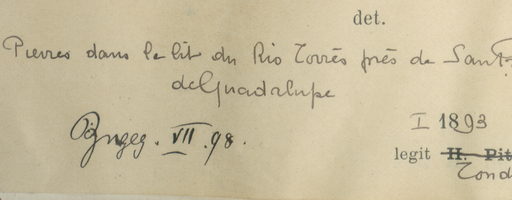 det.
Pierres dans le lit du Rio Torrès près de Sant
de Guadalupe
VII. 98.
I 1893
legit H. Pit
Tond